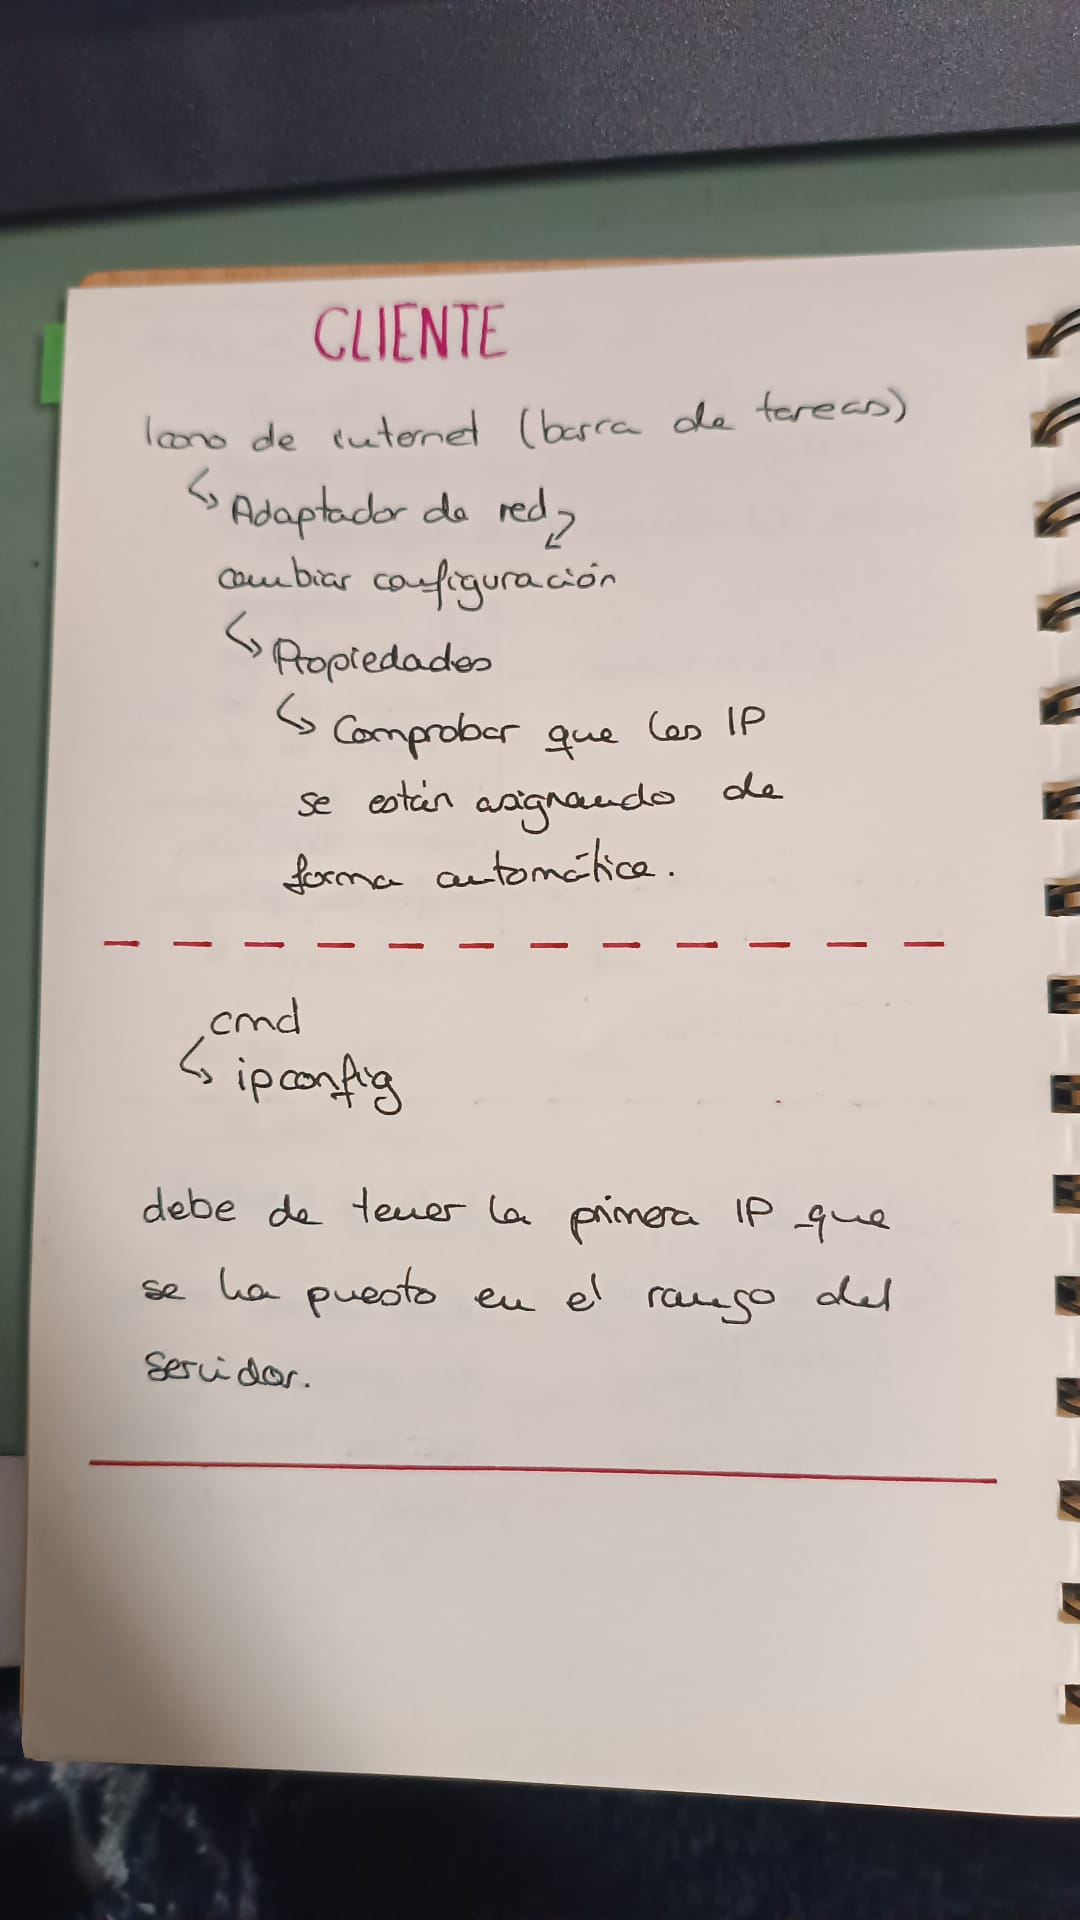 CLIENTE
Icono de internet (barra de tareas)
↳ Adaptador de red
cambiar configuración
↳ Propiedades
↳ Comprobar que las IP
se están asignando de
forma automática.
cmd
↳ ipconfig
debe de tener la primera IP que
se ha puesto en el rango del
servidor.